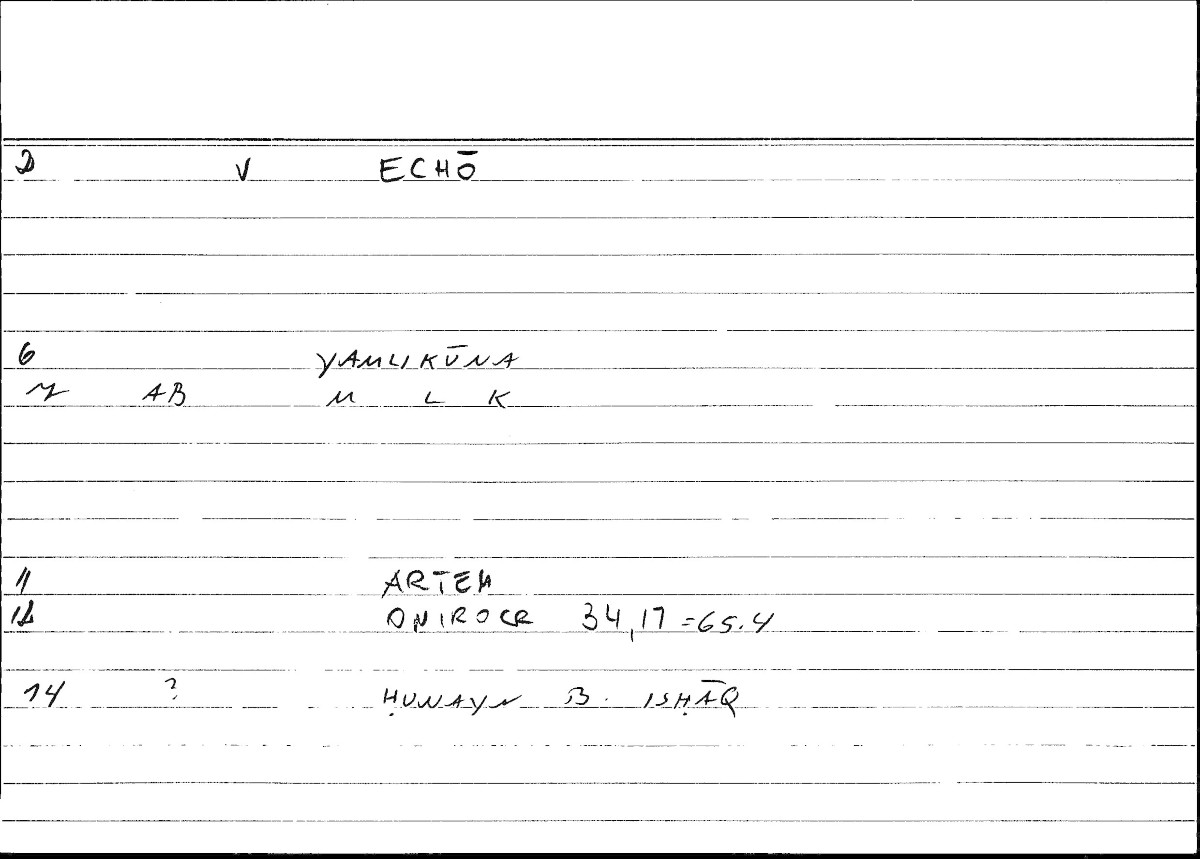 2 V ECHŌ
6 YAMLIKŪNA
7 AB M L K
11 ARTEM
12 ONIROCR 34,17 = 65.4
14 ? ḤUNAYN B. ISḤĀQ